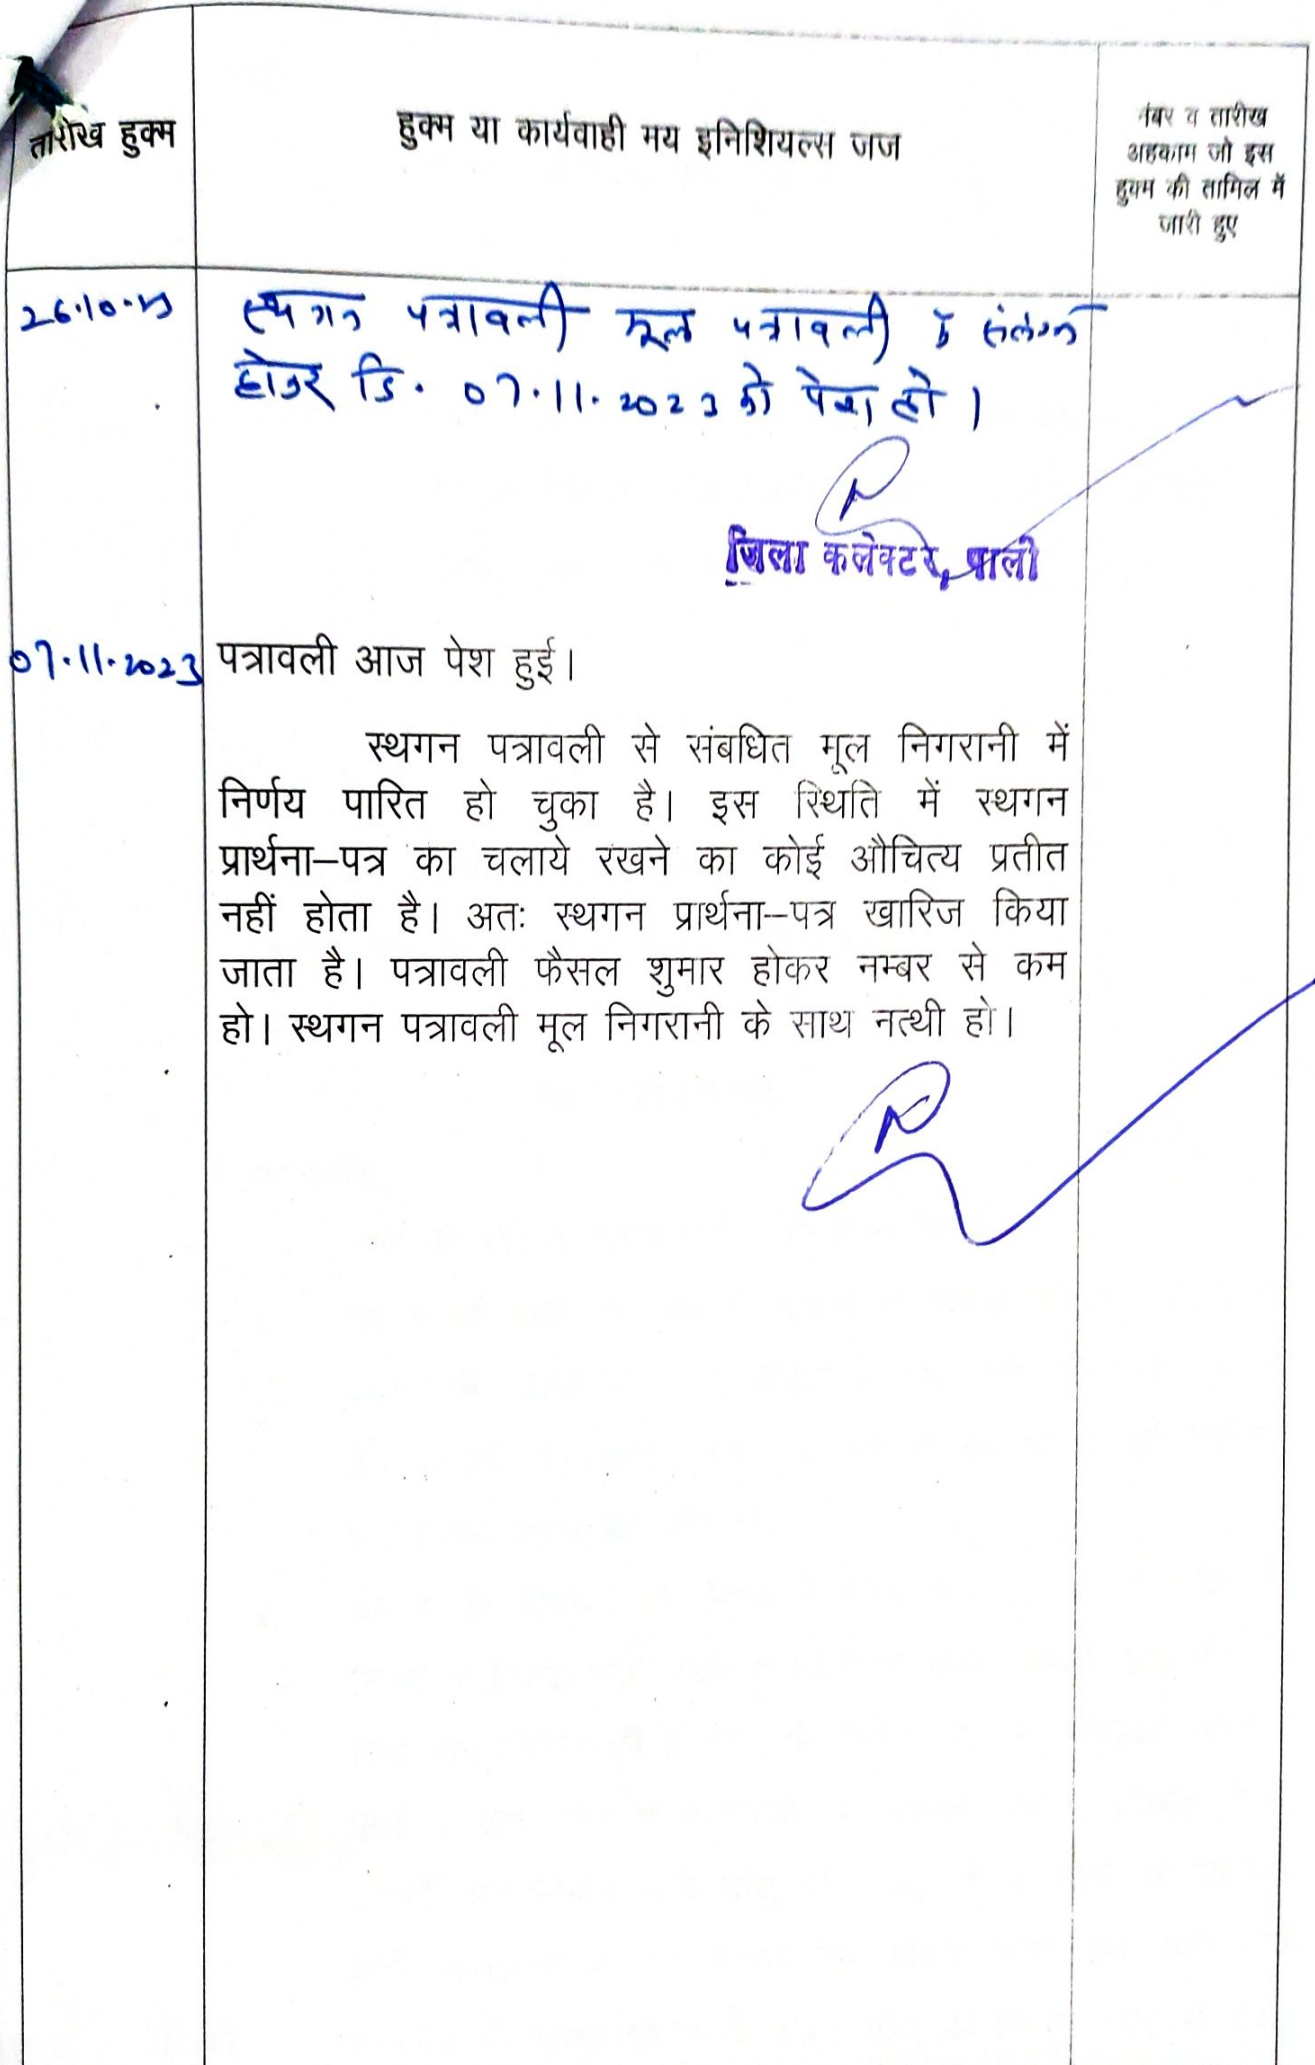 तारीख हुक्म
हुक्म या कार्यवाही मय इनिशियल्स जज
नंबर व तारीख
अहकाम जो इस
हुक्म की तामिल में
जारी हुए
26.10.23
स्थगन पत्रावली मूल पत्रावली के संलग्न
होकर दि. 07.11.2023 को पेश हो।
जिला कलेक्टर, पाली
07.11.2023
पत्रावली आज पेश हुई।
स्थगन पत्रावली से संबधित मूल निगरानी में
निर्णय पारित हो चुका है। इस स्थिति में स्थगन
प्रार्थना–पत्र का चलाये रखने का कोई औचित्य प्रतीत
नहीं होता है। अतः स्थगन प्रार्थना–पत्र खारिज किया
जाता है। पत्रावली फैसल शुमार होकर नम्बर से कम
हो। स्थगन पत्रावली मूल निगरानी के साथ नत्थी हो।